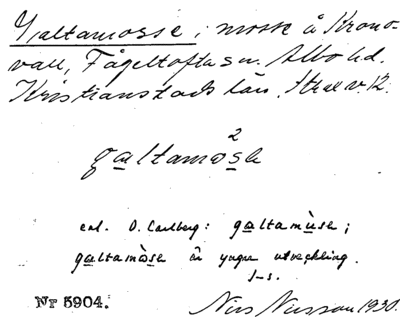 Galtamosse, mosse å Krono-
vall, Fågeltofta sn. Albo hd.
Kristianstads län.
galtamos̲e 2
enl. O. Carlberg: galtamùse;
galtamòse är yngre utveckling.
J-s.
Nr 5904. Nils Nilsson 1930.